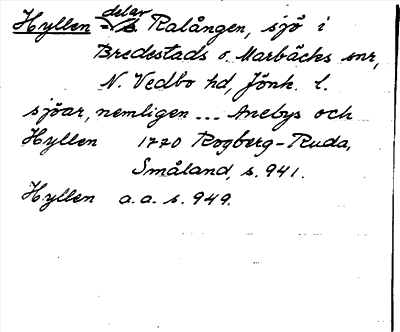 Hyllen = delar av Ralången, sjö i
Bredestads o. Marbäcks snr,
N. Vedbo hd, Jönk. l.
sjöar, nemligen ... Anebys och
Hyllen 1770 Rogberg-Ruda,
Småland, s. 941.
Hyllen a.a. s. 949.